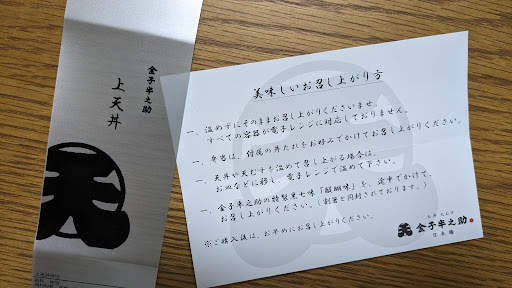 金子半之助
上天丼
天
美味しいお召し上がり方
一、温めずにそのままお召し上がりくださいませ。
すべての容器が電子レンジに対応しておりません。
一、弁当は、付属の丼たれをお好みでかけてお召し上がりください。
一、天丼や天むすを温めて召し上がる場合は、
お皿などに移し、電子レンジで温めて下さい。
一、金子半之助の特製黒七味「醍醐味」を、途中でかけて、
お召し上がりください。（割箸と同封されております。）
※ご購入後は、お早めにお召し上がりください。
天 金子半之助
日本橋